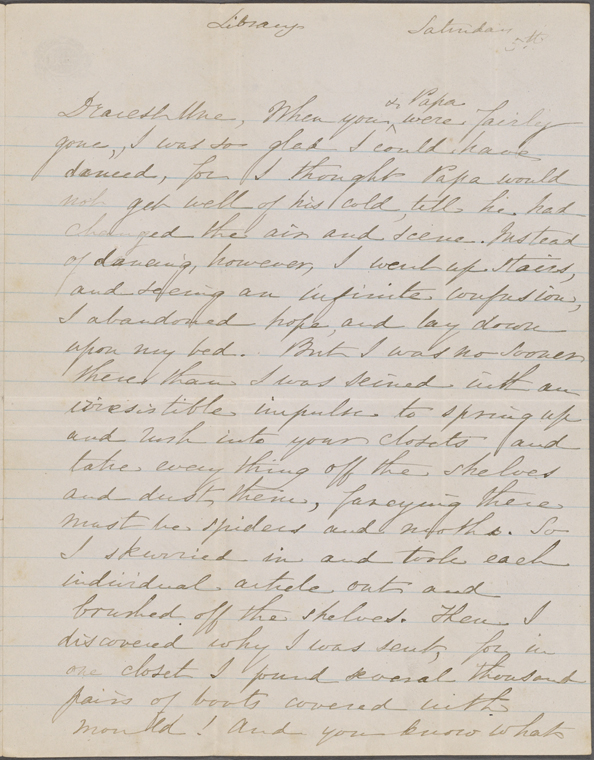 Library Saturday 5th
Dearest Une, When you & Papa were fairly
gone, I was so glad I could have
danced, for I thought Papa would
not get well of his cold, till he had
changed the air and scene. Instead
of dancing, however, I went up stairs,
and seeing an infinite confusion,
I abandoned hope, and lay down
upon my bed. But I was no sooner
there than I was seized with an
irresistible impulse to spring up
and rush into your closets and
take every thing off the shelves
and dust them, fancying there
must be spiders and moths. So
I skurried in and took each
individual article out and
brushed off the shelves. Then I
discovered why I was sent, for in
one closet I found several thousand
pairs of boots covered with
mould! And you know what